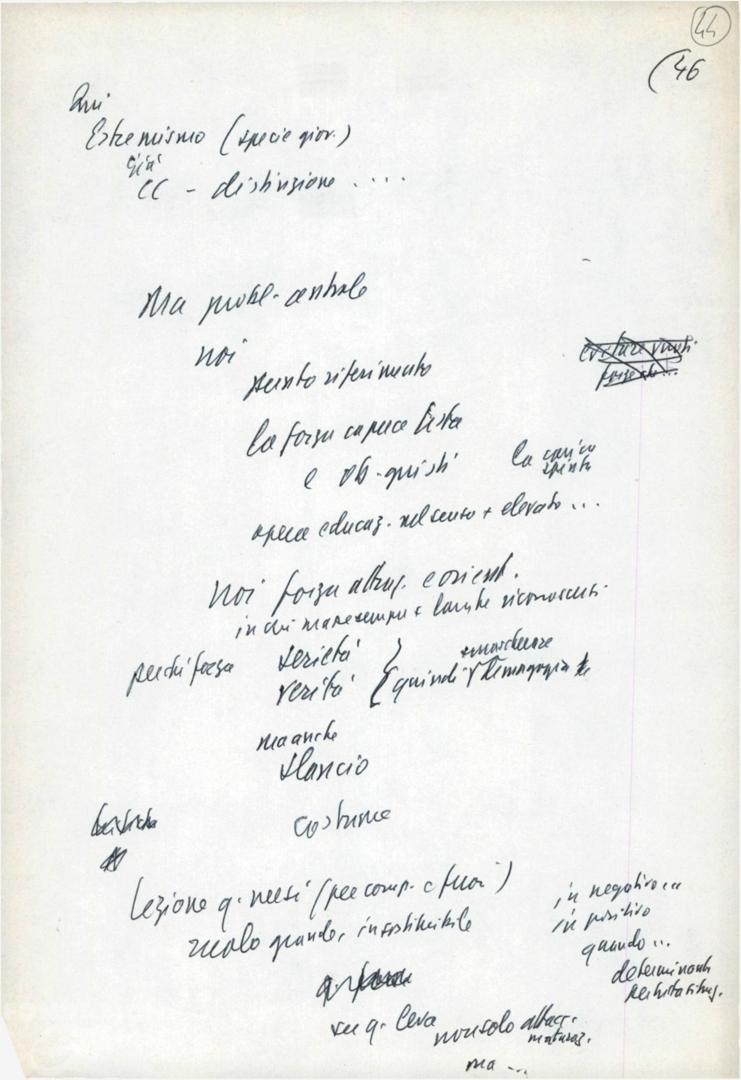 44
(46
Qui
Estremismo (specie giov.)
già
CC - distinzione ....
Ma probl. centrale
noi
punto riferimento
la forza capace lista
e ob. giusti
la carica
spinta
opera educaz. nel senso + elevato ...
noi forza attraz. e orient.
in cui masse sempre + larghe riconoscersi
perché forza serietà
verità
quindi smascherare
demagogia
ma anche
slancio
costume
Lezione q. mesi (per comp. e fuori)
ruolo grande, insostituibile
in negativo ...
in positivo
quando ...
determinante
su q. leva non solo attacc.
maturaz.
ma ...